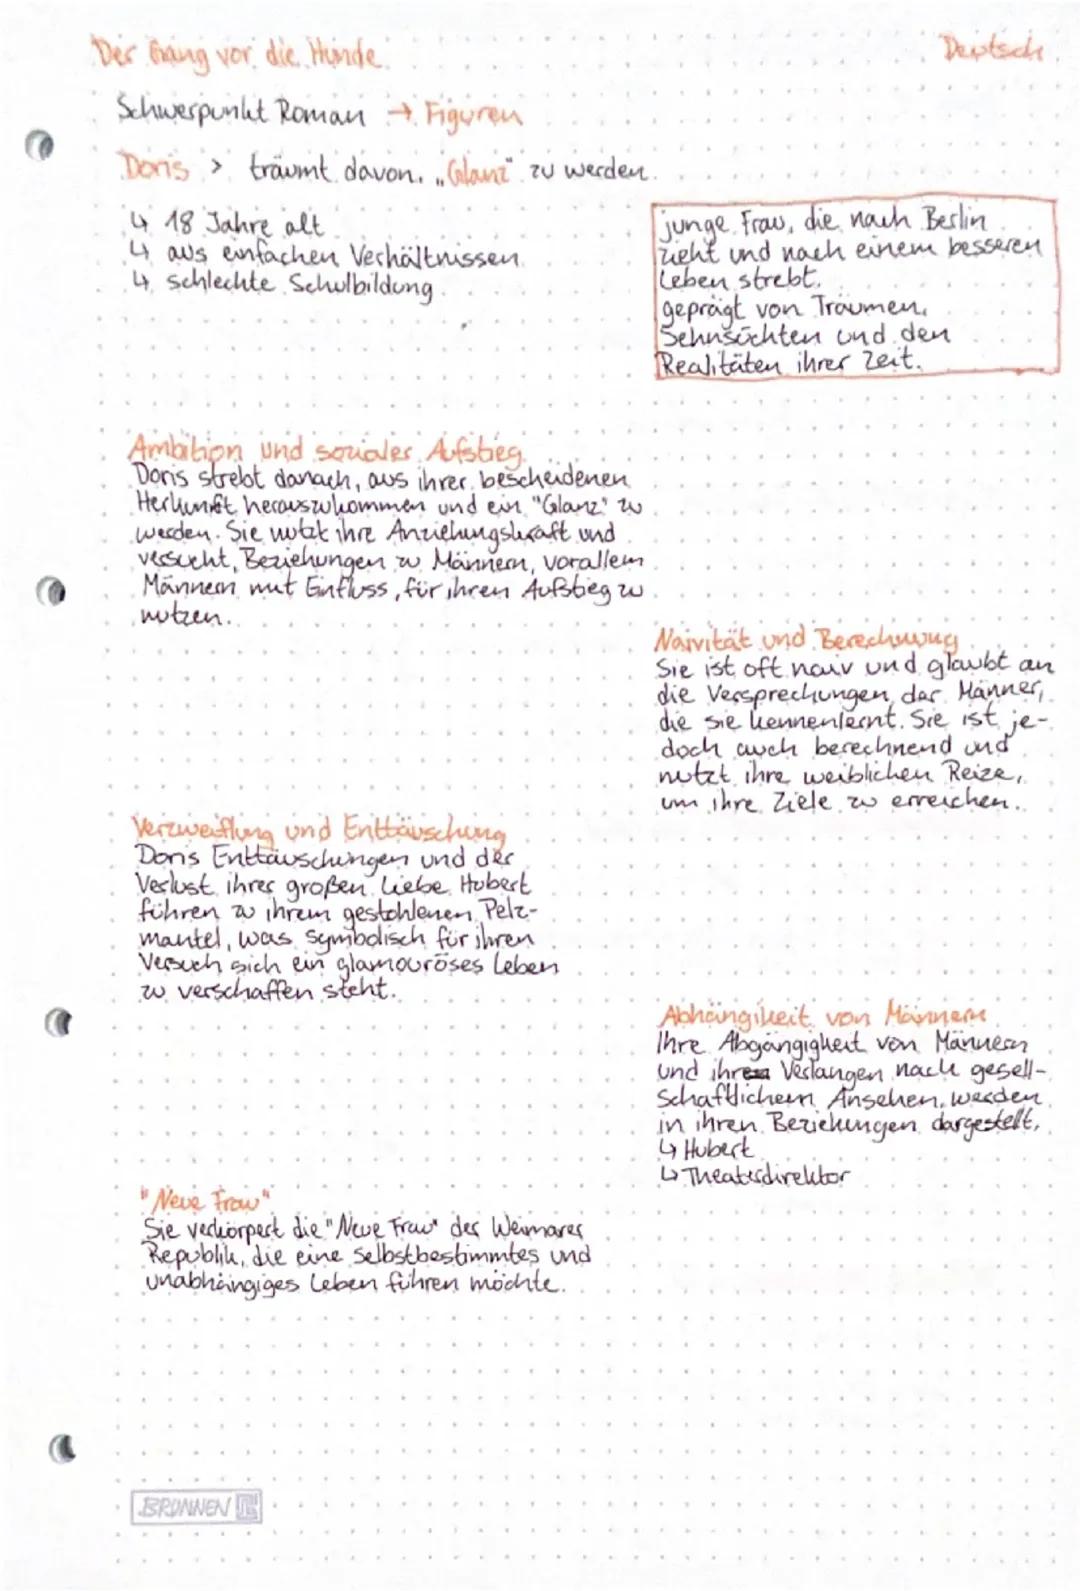 Der Gang vor die Hunde
Deutsch
Schwerpunkt Roman → Figuren
Doris > träumt davon, „Glanz" zu werden.
↳ 18 Jahre alt
↳ aus einfachen Verhältnissen
↳ schlechte Schulbildung
junge Frau, die nach Berlin
zieht und nach einem besseren
Leben strebt.
geprägt von Träumen,
Sehnsüchten und den
Realitäten ihrer Zeit.
Ambition und sozialer Aufstieg
Doris strebt danach, aus ihrer bescheidenen
Herkunft herauszukommen und ein "Glanz" zu
werden. Sie nutzt ihre Anziehungskraft und
versucht, Beziehungen zu Männern, vorallem
Männern mit Einfluss, für ihren Aufstieg zu
nutzen.
Naivität und Berechnung
Sie ist oft naiv und glaubt an
die Versprechungen der Männer,
die sie kennenlernt. Sie ist je-
doch auch berechnend und
nutzt ihre weiblichen Reize,
um ihre Ziele zu erreichen.
Verzweiflung und Enttäuschung
Doris Enttäuschungen und der
Verlust ihrer großen Liebe Hubert
führen zu ihrem gestohlenen Pelz-
mantel, was symbolisch für ihren
Versuch sich ein glamouröses Leben
zu verschaffen steht.
Abhängikeit von Männern
Ihre Abgängigkeit von Männern
und ihr Verlangen nach gesell-
schaftlichem Ansehen, werden
in ihren Beziehungen dargestellt,
↳ Hubert
↳ Theaterdirektor
"Neue Frau"
Sie verkörpert die "Neue Frau" der Weimarer
Republik, die eine selbstbestimmtes und
unabhängiges Leben führen möchte.
BRUNNEN